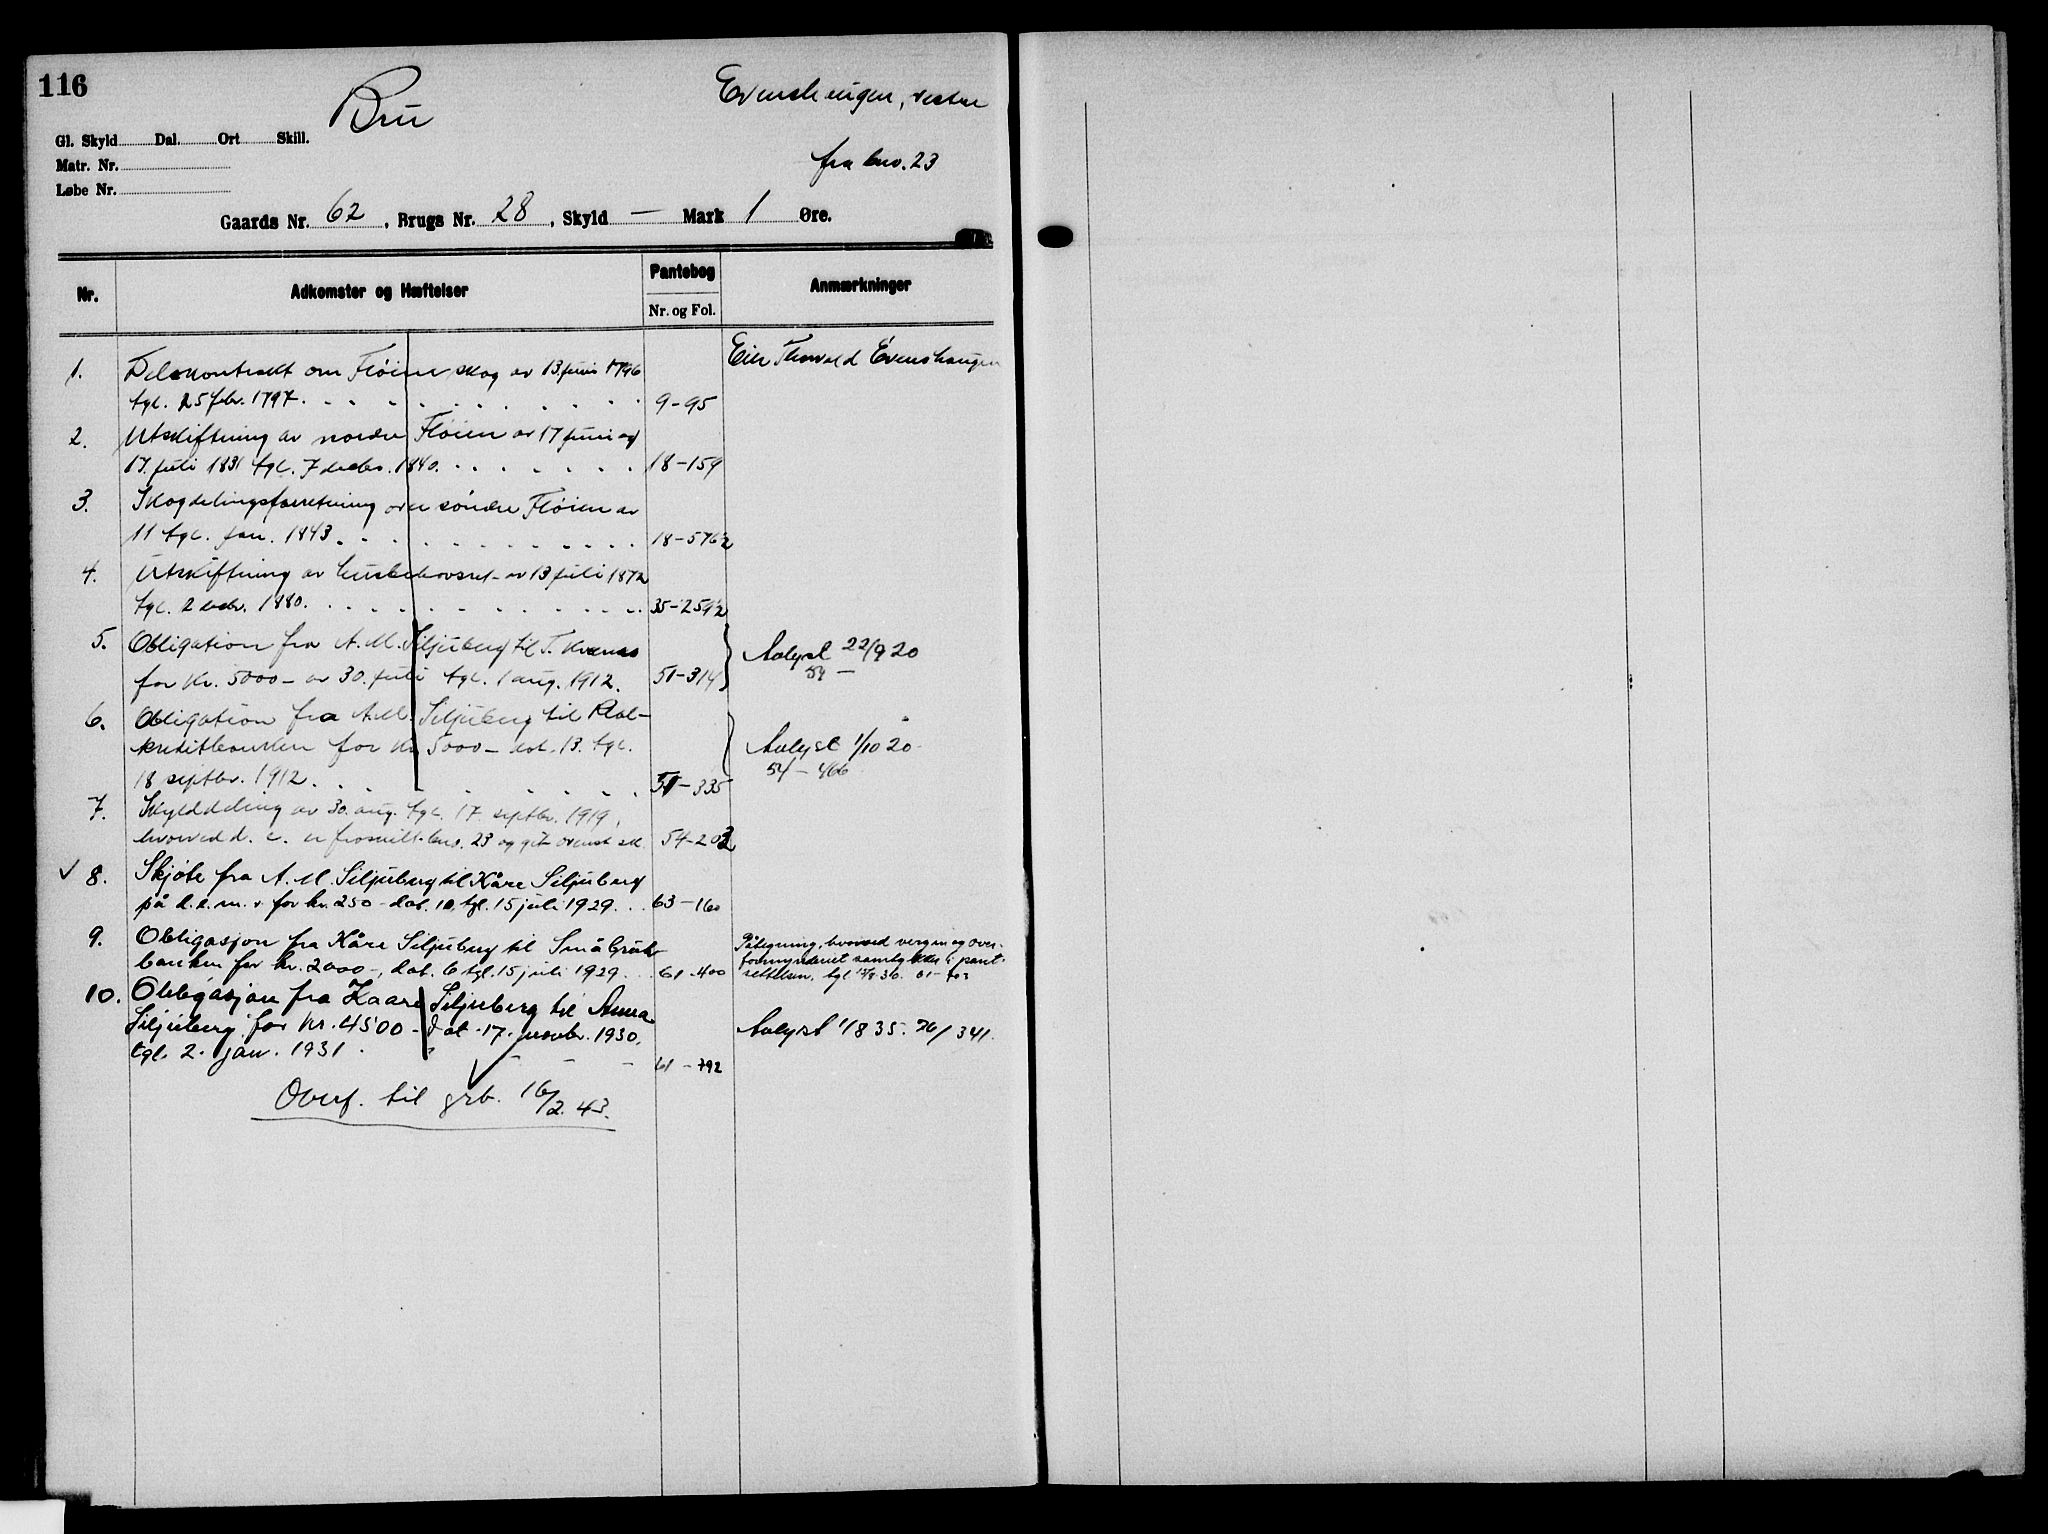 116
Bru
Evenshaugen, vestre
fra bno. 23
Gl. Skyld Dal. Ort Skill.
Matr. Nr.
Løbe Nr.
Gaards Nr. 62, Brugs Nr. 28, Skyld — Mark 1 Øre.
Nr. Adkomster og Hæftelser Pantebog Nr. og Fol. Anmærkninger
Eier Thorvald Evenshaugen
1. Delekontrakt om Fløien skog av 13. juni 1796
tgl. 25 febr. 1797. 9-95
2. Utskiftning av nordre Fløien av 17 juni og
17. juli 1831 tgl. 7 decbr. 1840. 18-159
3. Skogdelingsforretning over søndre Fløien av
11 tgl. jan. 1843. 18-576
4. Utskiftning av husbehovsret av 13 juli 1872
tgl. 2 decbr. 1880. 35-259
5. Obligation fra A. M. Siljuberg til T.
for Kr. 5000 - av 30. juli tgl. 1 aug. 1912. 51-314
Avlyst 22/9 20
54 —
6. Obligation fra A. M. Siljuberg til Real-
kreditbanken for Kr. 5000 - dat. 13. tgl.
18 septbr. 1912. 51-335
Avlyst 1/10 20
54 - 466
7. Skylddeling av 30. aug. tgl. 17. septbr. 1919,
hvorved d. e. er fraskilt bno. 23 og git ovenst. sk. 54-203
✓ 8. Skjøte fra A. M. Siljuberg til Kåre Siljuberg
på d. e. m. v for kr. 250 - dat. 10, tgl. 15 juli 1929. 63-160
9. Obligasjon fra Kåre Siljuberg til Småbruk-
banken for kr. 2000 -, dat. 6 tgl. 15 juli 1929. 61-400
Påtegning, hvorved vergen og over-
formynderiet samtykker i pant-
settelsen, tgl
10. Obligasjon fra Kaare Siljuberg til Anna
Siljuberg for Kr. 4500 - dat. 17. novbr. 1930,
tgl. 2. jan. 1931. 61-792
Avlyst 1/8 35. 70/341.
Overf. til grb. 16/2. 43.